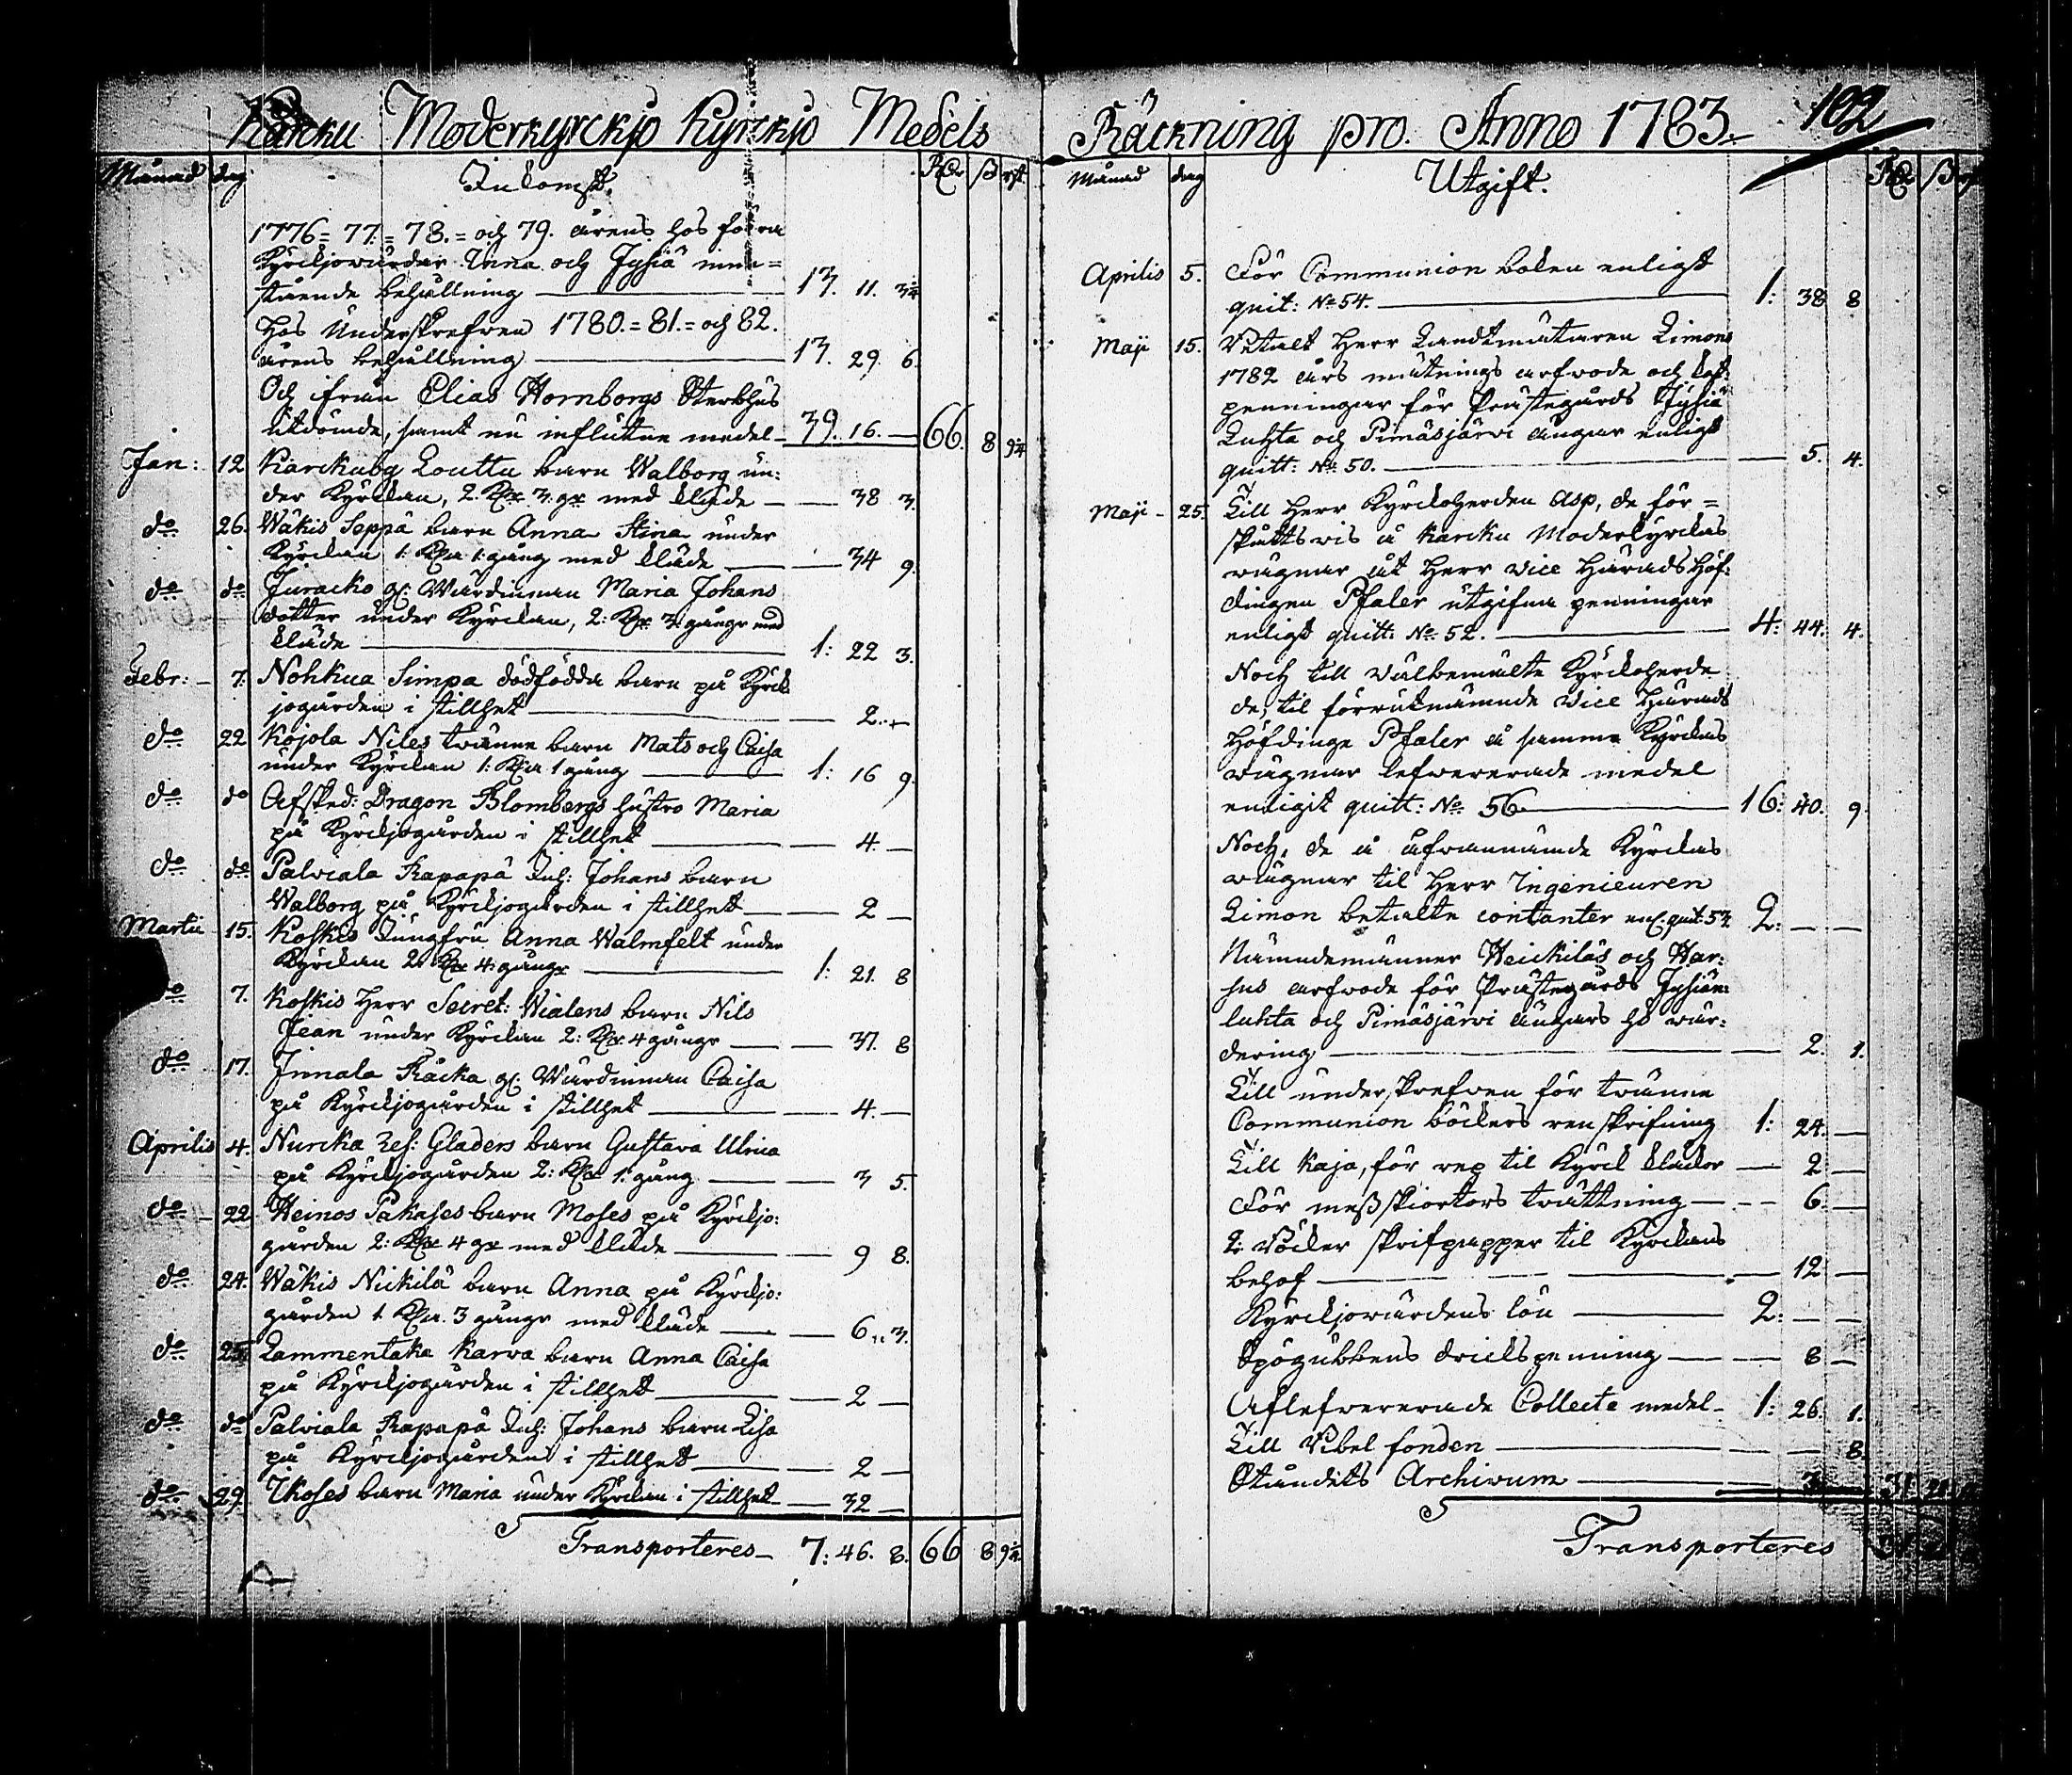 Karcku Moderkyrckjo Kyrckjo Medels
Månad dag Inkomst. Rdr ß rst.
1776 = 77 = 78. = och 79. årens hos förra
Kyrckjowärdar Unna och Jyhiä inne=
stående behållning — 13. 11. 3¼
Hos Underskrefven 1780. = 81. = och 82.
årens behållning — 13. 29. 6.
Och ifrån Elias Hornborgs Sterbhus
utdömde, samt nu influtne medel — 39. 16. — 66. 8 9¼
Jan: 12 Karckuby Louttu barn Walborg un:
der Kyrckan, 2. Kl:r 3. gr med kläde — 38 3.
do 26. Wäkis Seppä barn Anna Stina under
Kyrckan 1. Kl:a 1: gång med kläde — 34 9.
do do Juracko gl: Wärdinnan Maria Johans
dotter under Kyrckan, 2: Kl:r 3: gånger med
kläde — 1: 22 3.
Febr: 7. Nohkua Simpa dödfödda barn på Kyrck
jogården i stillhet — 2. —
do 22 Kojola Niles tvänne barn Mats och Caisa
under Kyrckan 1: Kl:a 1 gång — 1: 16 9.
do do Afsked: Dragon Blombergs hustro Maria
på Kyrckjogården i stillhet — 4. —
do do Palviala Rapapä Inh: Johans barn
Walborg på Kyrckjogården i stillhet — 2 —
Martii 15. Koskis Jungfru Anna Walmfelt under
Kyrckan 2: Kl:r 4: gånger — 1: 21. 8
do 7. Koskis Herr Secret: Wialens barn Nils
Jean under Kyrckan 2: Kl:r 4 gånger — 37. 8
do 17. Innala Räcka gl: Wärdinnan Caisa
på Kyrckjogården i stillhet — 4. —
Aprilis 4. Nurcka Ref: Gladers barn Gustava Ulrica
på Kyrckjogården 2: Kl:ar 1: gång — 3 5.
do 22 Heinos Pakases barn Moses på Kyrckjo:
gården 2: Kl:r 4 gr med kläde — 9 8.
do 24. Wäkis Nickilä barn Anna på Kyrckjo:
gården 1 Kl:a. 3 gånger med kläde — 6. 3.
do 25. Lammentaka Karva barn Anna Caisa
på Kyrckjogården i stillhet — 2 —
do do Palviala Rapapä Inh: Johans barn Lisa
på Kyrckjogården i stillhet — 2 —
do 29. Ikoses barn Maria under Kyrckan i stillhet — 32 —
Transporteres — 7: 46. 8. 66 8 9¼
Räckning pro. Anno 1783. 102
Månad dag Utgift. Rdr ß
Aprilis 5. För Communion boken enligt
quit: No 54. — 1: 38 8
Maji 15. Betalt Herr Landtmätaren Limons
1782 års mätnings arfvode och
penningar för Prästegårds Jyhiä
Luhta och Pimäsjärvi ängar enligt
quitt: No 50. — 5. 4.
Maji 25. Till Herr Kyrckoherden Asp, de för=
skåttsvis å Karcku Moderkyrckas
vägnar åt Herr Vice Häradshöf:
dingen Pfaler utgifna penningar
enligt quitt: No 52. — 4: 44. 4.
Noch till välbemälte Kyrckoherde
de, til förrutnämnde Vice Härads
höfdinge Pfaler å samma Kyrckas
vägnar lefvererade medel
enligit quitt: No 56 — 16: 40. 9.
Noch, de å åfvannämde Kyrckas
vägnar til Herr Ingenieuren
Limon betalte contanter enl. quit: 57. 2. — —
Nämndemänner Heickiläs och Har:
jus arfvode för Prästegårds Jyhiän:
luhta och Pimäsjärvi ängars hö vär:
dering — 2. 1.
Till underskrefven för tvänne
Communion böckers renskrifning 1: 24. —
Till Kaja, för rep til Kyrck klockor — 2 —
För messkiortors tvättning — 6. —
2: Böcker skrifpapper til Kyrckans
behof — 12 —
Kyrckjowärdens lön — 2. — —
Spögubbens drickspenning — 8 —
Aflefvererade Collecte medel — 1: 26. 1.
Till Bibel fonden — 8.
Ståndets Archivum — 3 —
Transporteres